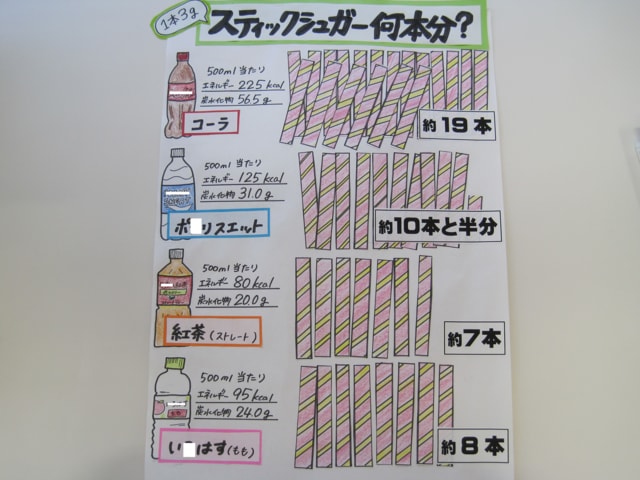 1本3g
スティックシュガー何本分?
500ml当たり
エネルギー 225kcal
炭水化物 56.5g
コーラ
約19本
500ml 当たり
エネルギー 125kcal
炭水化物 31.0g
ポ リスエット
約10本と半分
500ml 当たり
エネルギー 80kcal
炭水化物 20.0g
紅茶(ストレート)
約7本
500ml 当たり
エネルギー 95kcal
炭水化物 24.0g
い はす(もも)
約8本